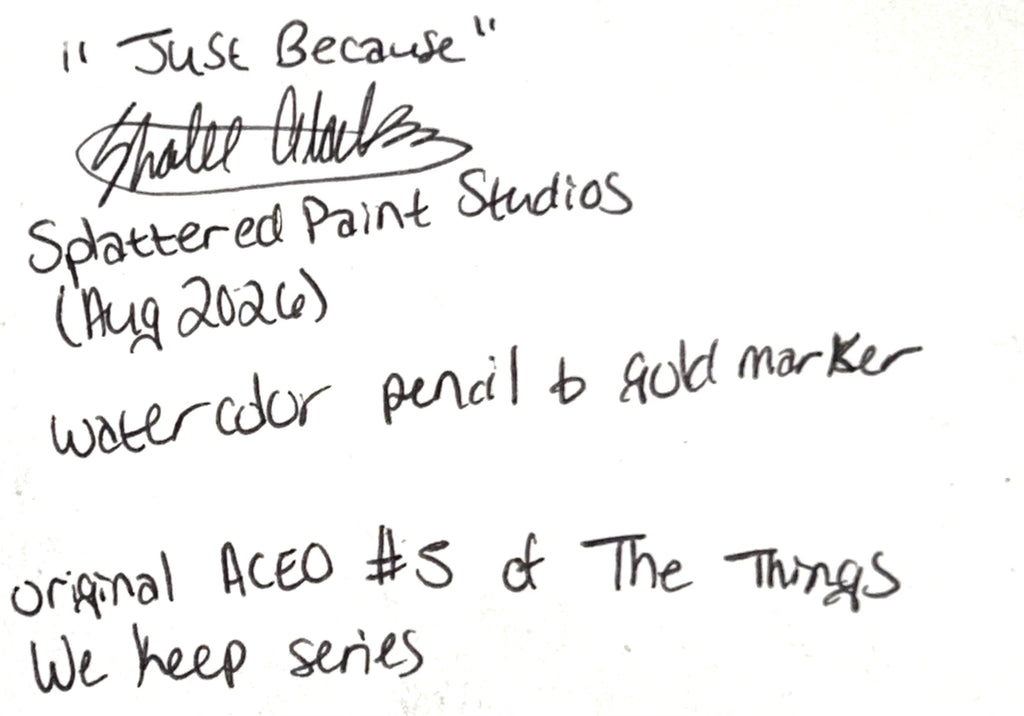 "Just Because"
Splattered Paint Studios
(Aug 2026)
watercolor pencil & Gold marker
original ACEO #5 of The Things
We keep series